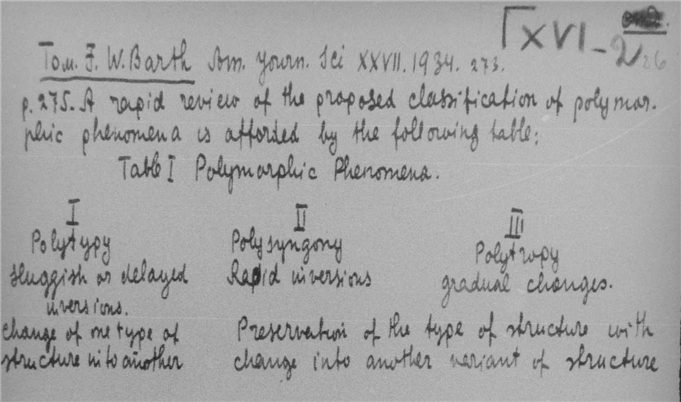 ΓXVI-2 26
Tom. F. W. Barth Am. Journ. Sci XXVII. 1934. 273.
p. 275. A rapid review of the proposed classification of polymor-
phic phenomena is afforded by the following table:
Table I Polymorphic Phenomena.
I II III
Polytypy Polysyngony Polytropy
sluggish or delayed Rapid inversions gradual changes.
inversions.
change of one type of Preservation of the type of structure with
structure into another change into another variant of structure